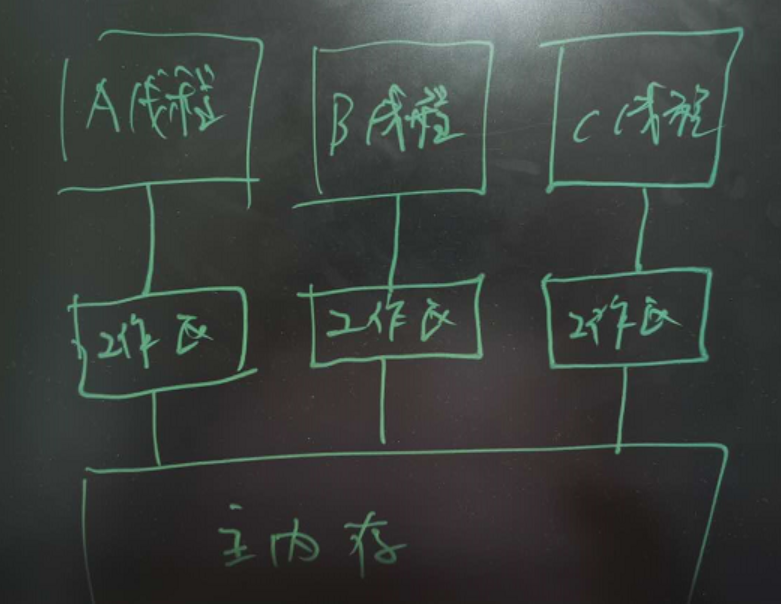 A线程
B线程
C线程
工作区
工作区
工作区
主内存